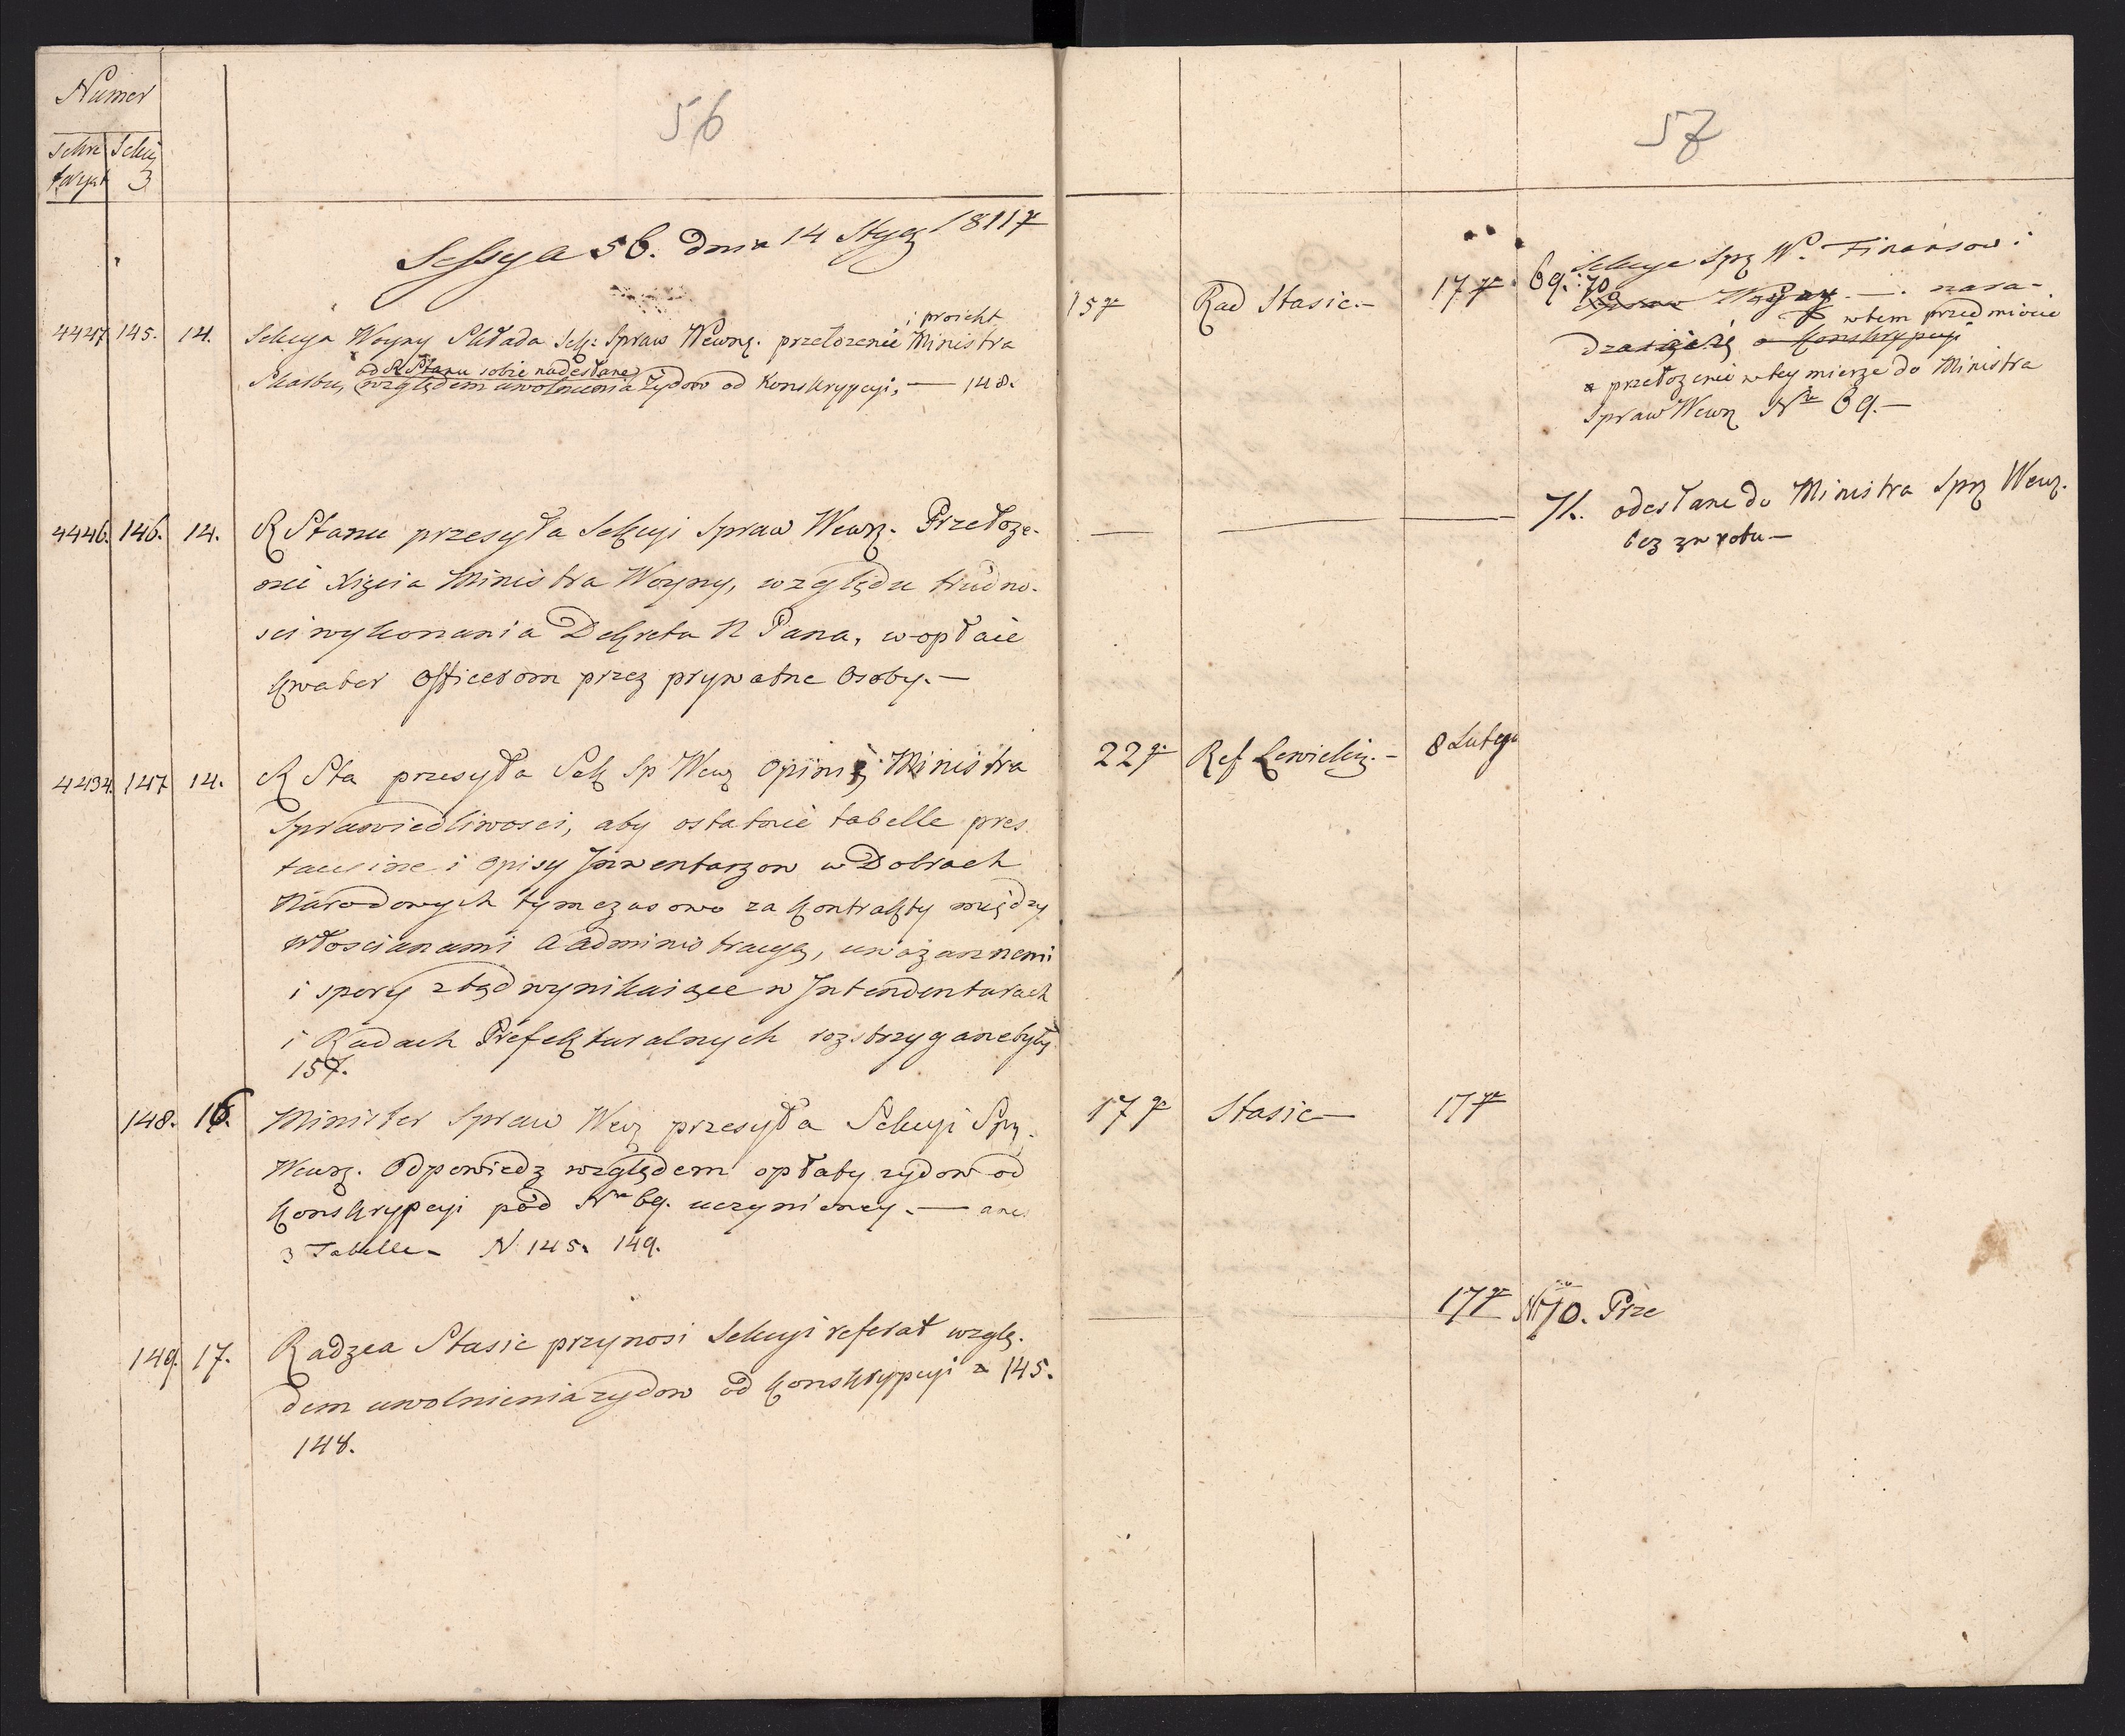 Numer
56
Sekre Sekcij
taryat 3
Sessya 56. dnia 14 Stycz 1811 r
i proiekt
4427 145. 14. Sekcya Woyny Składa Sek: Spraw Wewnę. przełozenie Ministra
od R Stanu sobie nadesłane
Skarbu, względem uwolnienia Żydow od Konskrypcyi, — 148.
4446. 146. 14. R Stanu przesyła Sekcyi Spraw Wewnę. Przełoze-
nie Xięcia Ministra Woyny, względu trudno-
sci wykonania Dekretu N Pana, w opłacie
kwater Officerom przez prywatne Osoby. —
4434. 147 14. R Sta przesyła Sek Sp Wew Opinię Ministra
Sprawiedliwosci, aby ostatnie tabelle pres
tacyine i opisy Inwentarzow w Dobrach
Narodowych tymczasowo za kontrakty między
Włoscianami a administracyą, uważannemi
i spory ztąd wynikaiące w Intendenturach
i Radach Prefekturalnych rozstrzygane były
157.
148. 16. Minister Spraw Wew przesyła Sekcyi Spr.
Wewnę. Odpowiedz względem opłaty zydow od
konskrypcyi pod Nr 69. uczynioney. —
3 Tabelle - N. 145. 149.
149. 17. Radzca Stasic przynosi Sekcyi referat wzglę-
dem uwolnienia zydow od konskrypcyi 145.
148.
57
15 Rad Stasic. — 17 69. 70 Sekcye Spr W. Finansow i
Woyny — . nara-
w tem przedmiocie
dzaiącą o konskrypcyi
przełozenie w tey mierze do Ministra
Spraw Wewn Nr 69. —
— — — 71. odesłane do Ministra Spr Wew.
bez zwrotu —
22 Ref Lewicki. — 8 Lutego
17 Stasic — 17
17 N 70. Prze